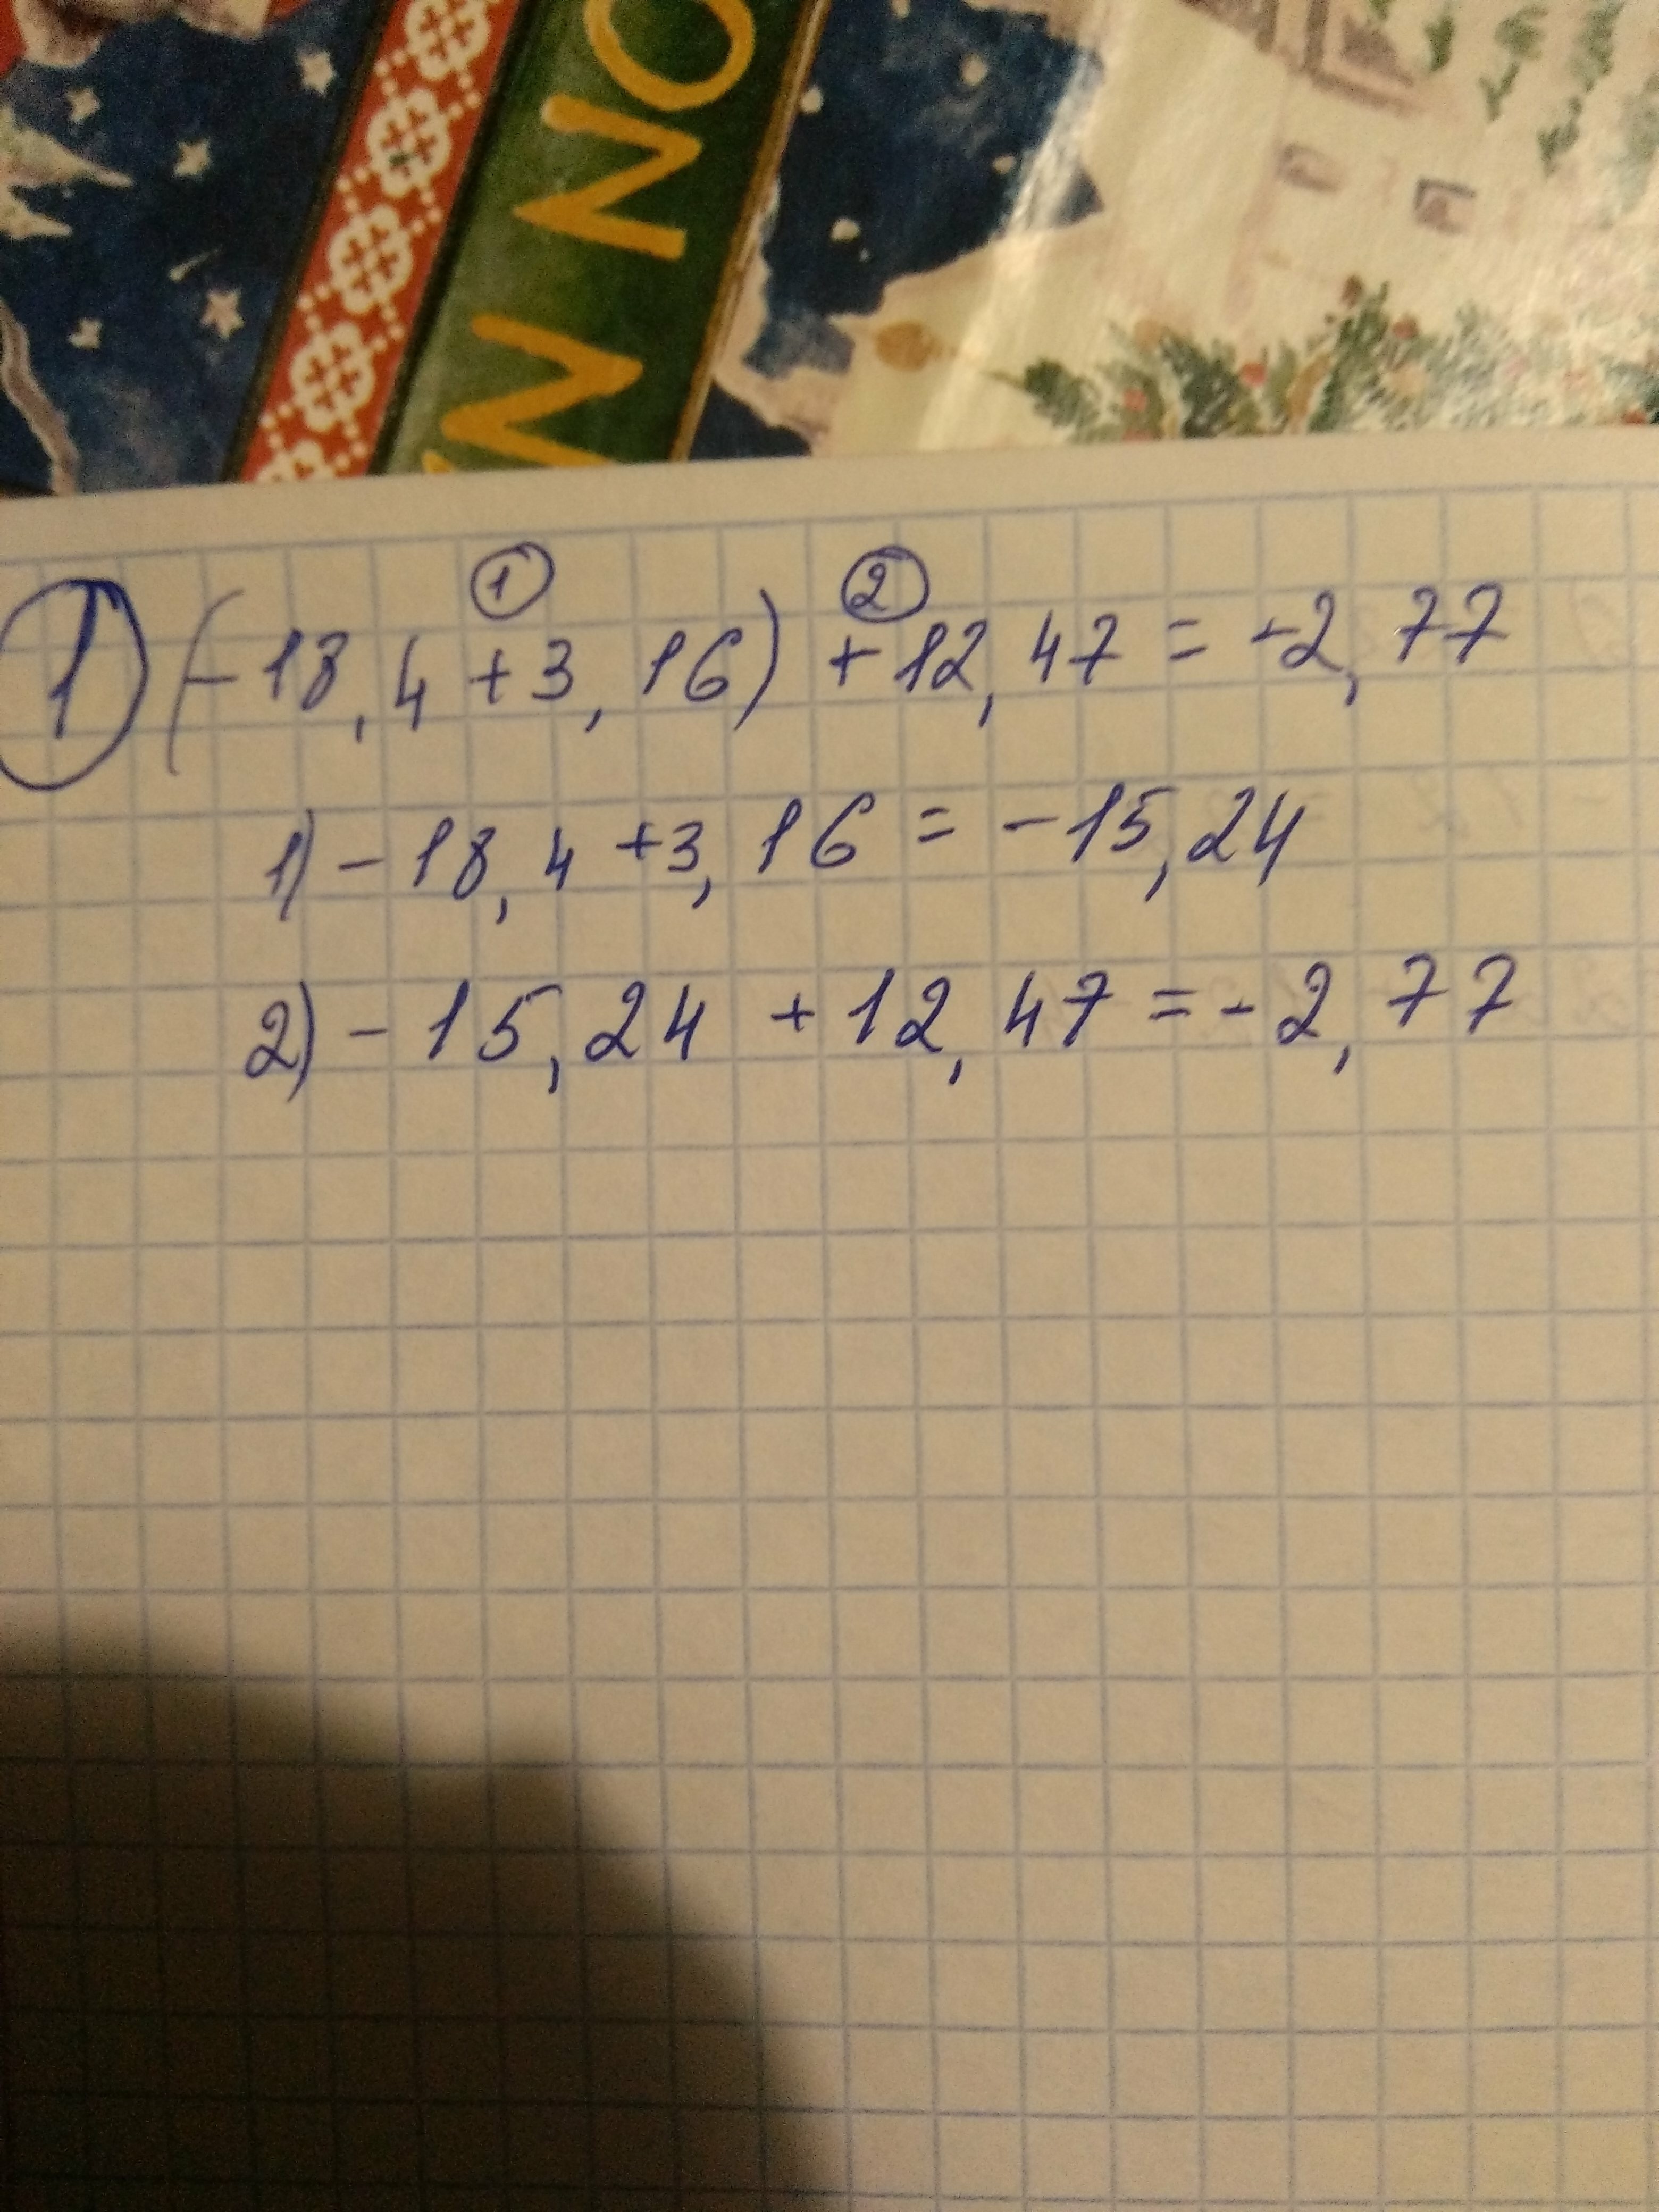 ОММ
① ②
① (-18,4+3,16)+12,47=-2,77
1) -18,4+3,16=-15,24
2) -15,24+12,47=-2,77